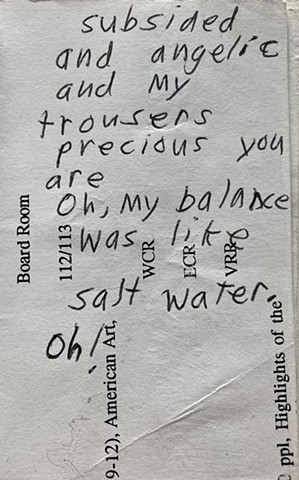 subsided
and angelic
and my
trousers
precious you
are
Oh, my balance
was like
salt water.
Oh!
Board Room
112/113
WCR
ECR
VRR
9-12), American Art,
ppl, Highlights of the